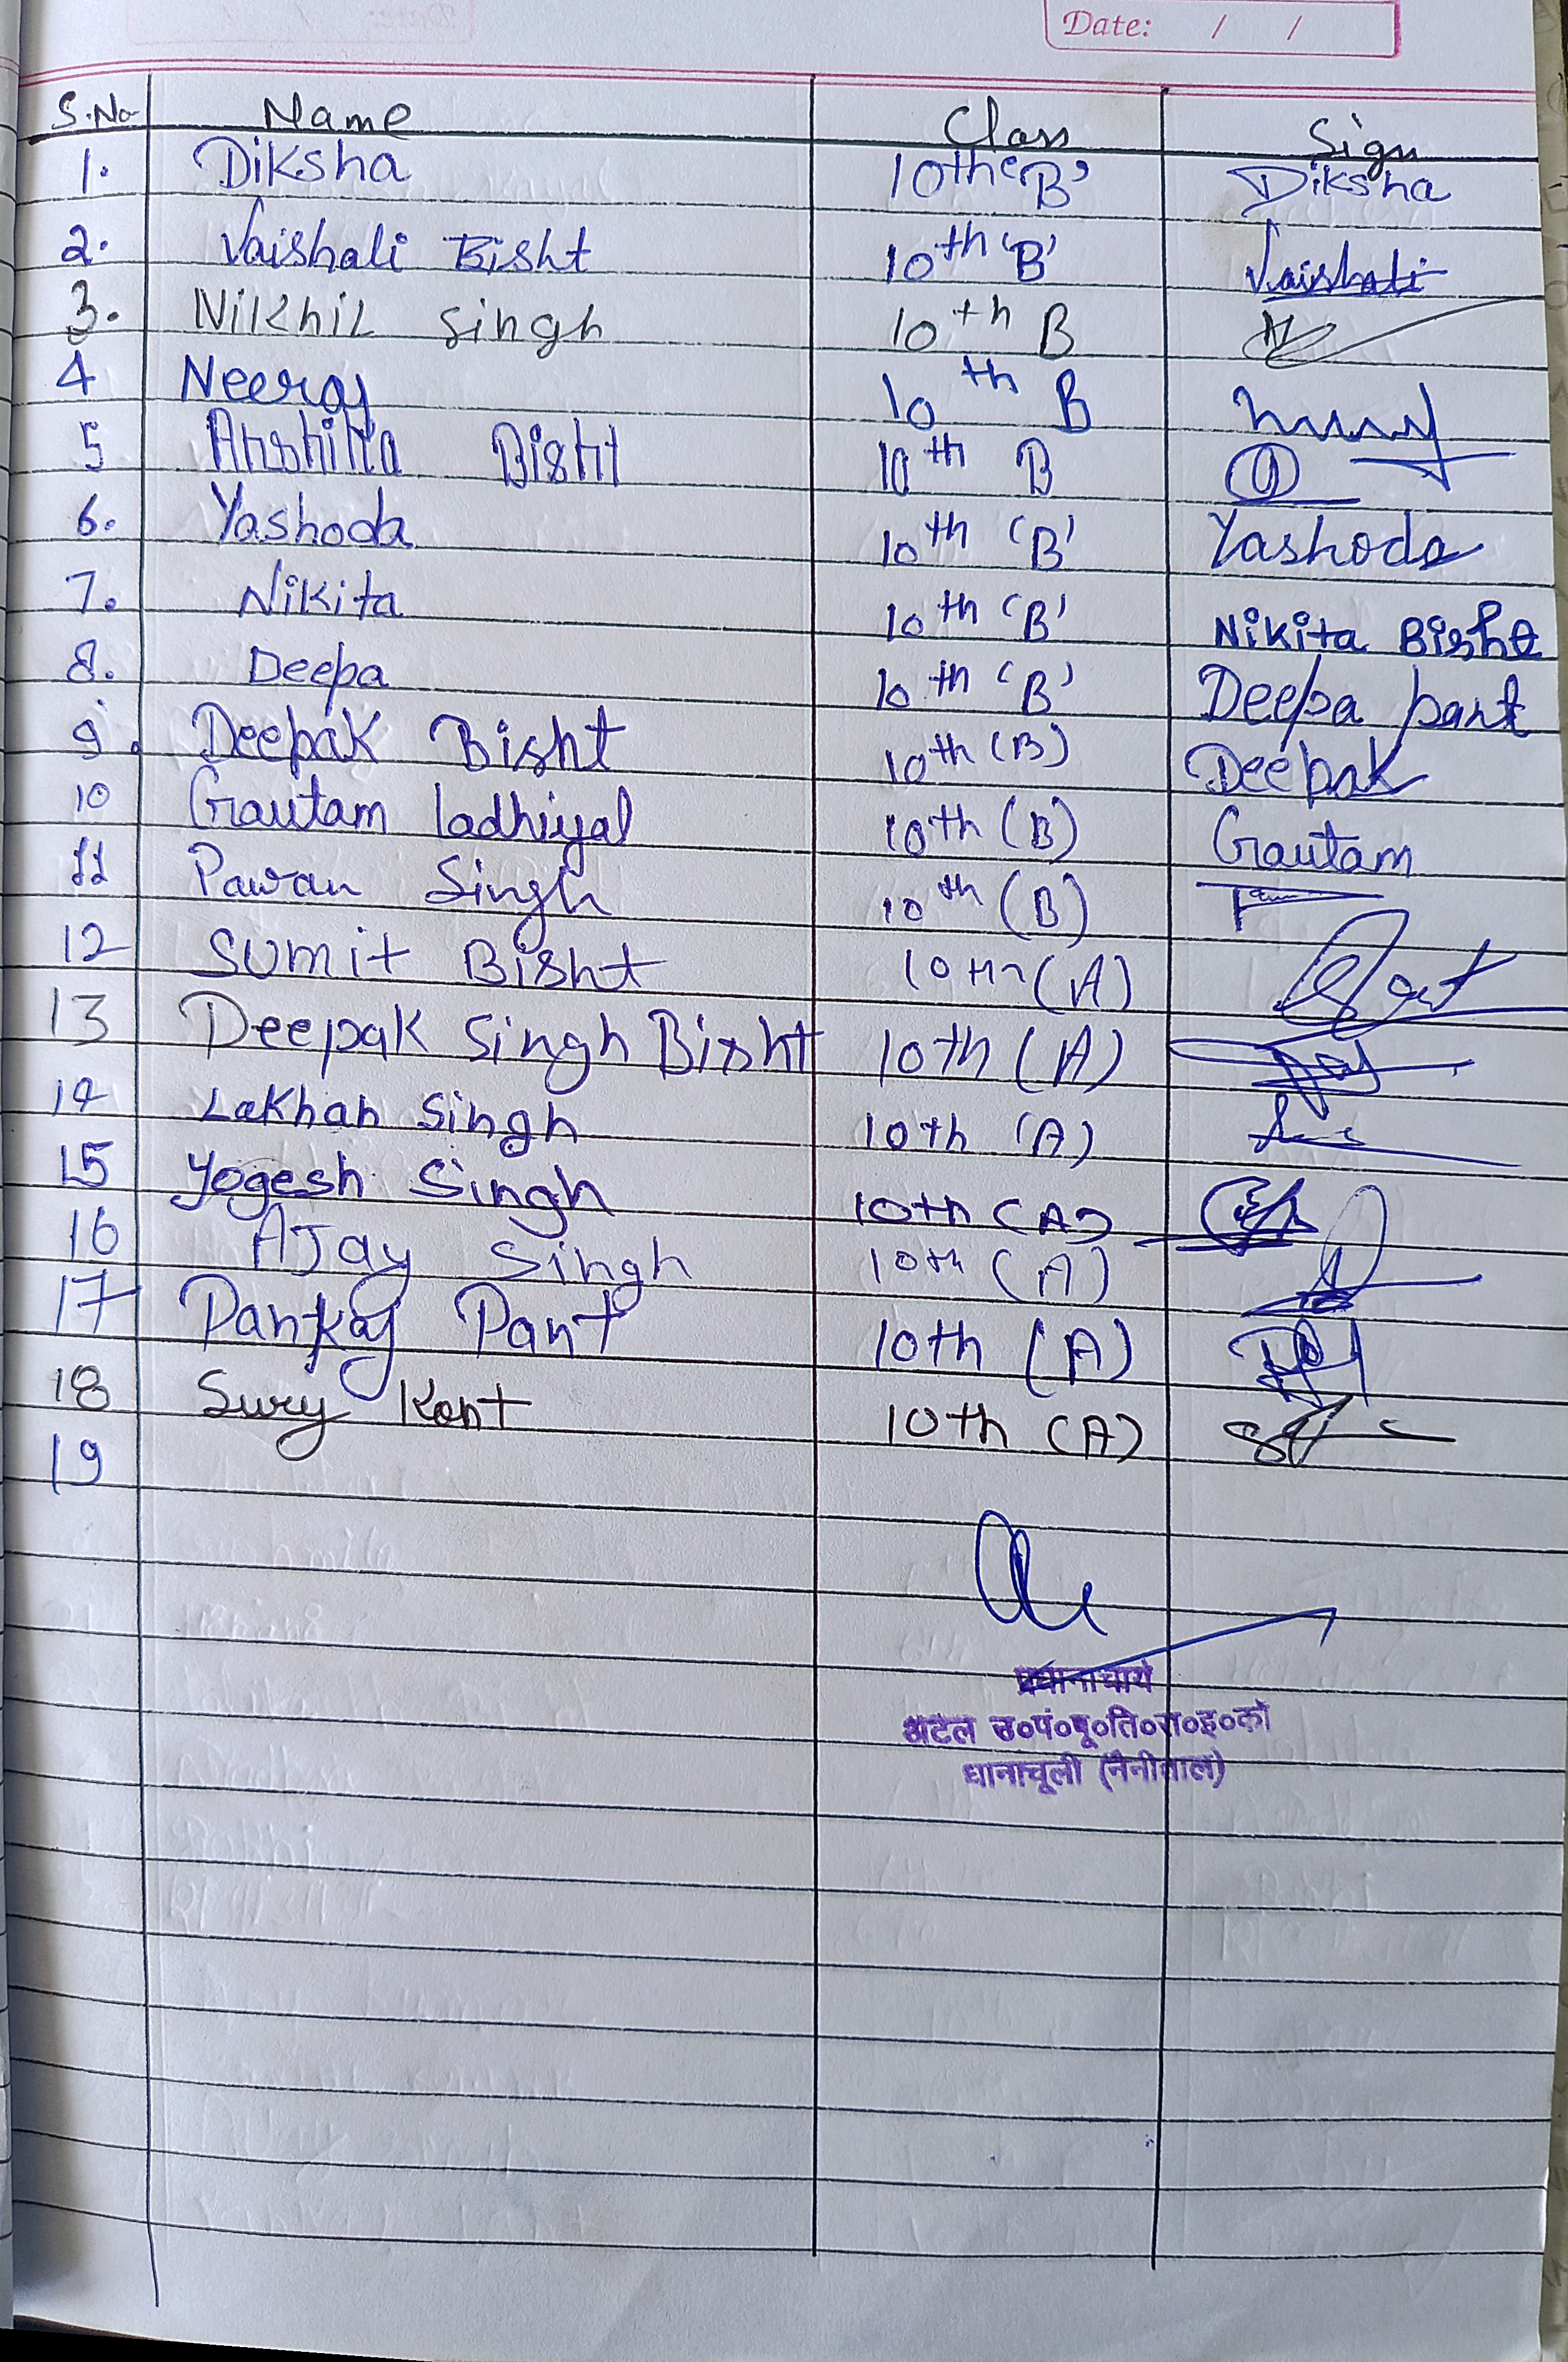 Date: / /
S.No Name Class Sign
1. Diksha 10th 'B' Diksha
2. Vaishali Bisht 10th 'B' Vaishali
3. Nikhil Singh 10th B
4 Neeraj 10th B
5 Bisht 10th B
6. Yashoda 10th 'B' Yashoda
7. Nikita 10th 'B' Nikita Bisht
8. Deepa 10th 'B' Deepa pant
9. Deepak Bisht 10th (B) Deepak
10 Gautam ladhiyal 10th (B) Gautam
11 Pawan Singh 10th (B)
12 Sumit Bisht 10th (A)
13 Deepak Singh Bisht 10th (A)
14 Lakhan Singh 10th (A)
15 Yogesh Singh 10th (A)
16 AJay Singh 10th (A)
17 Pankaj Pant 10th (A)
18 Sury Kant 10th (A)
19
प्रधानाचार्य
अटल उ०पं०पू०ति०रा०इ०का
धानाचूली (नैनीताल)